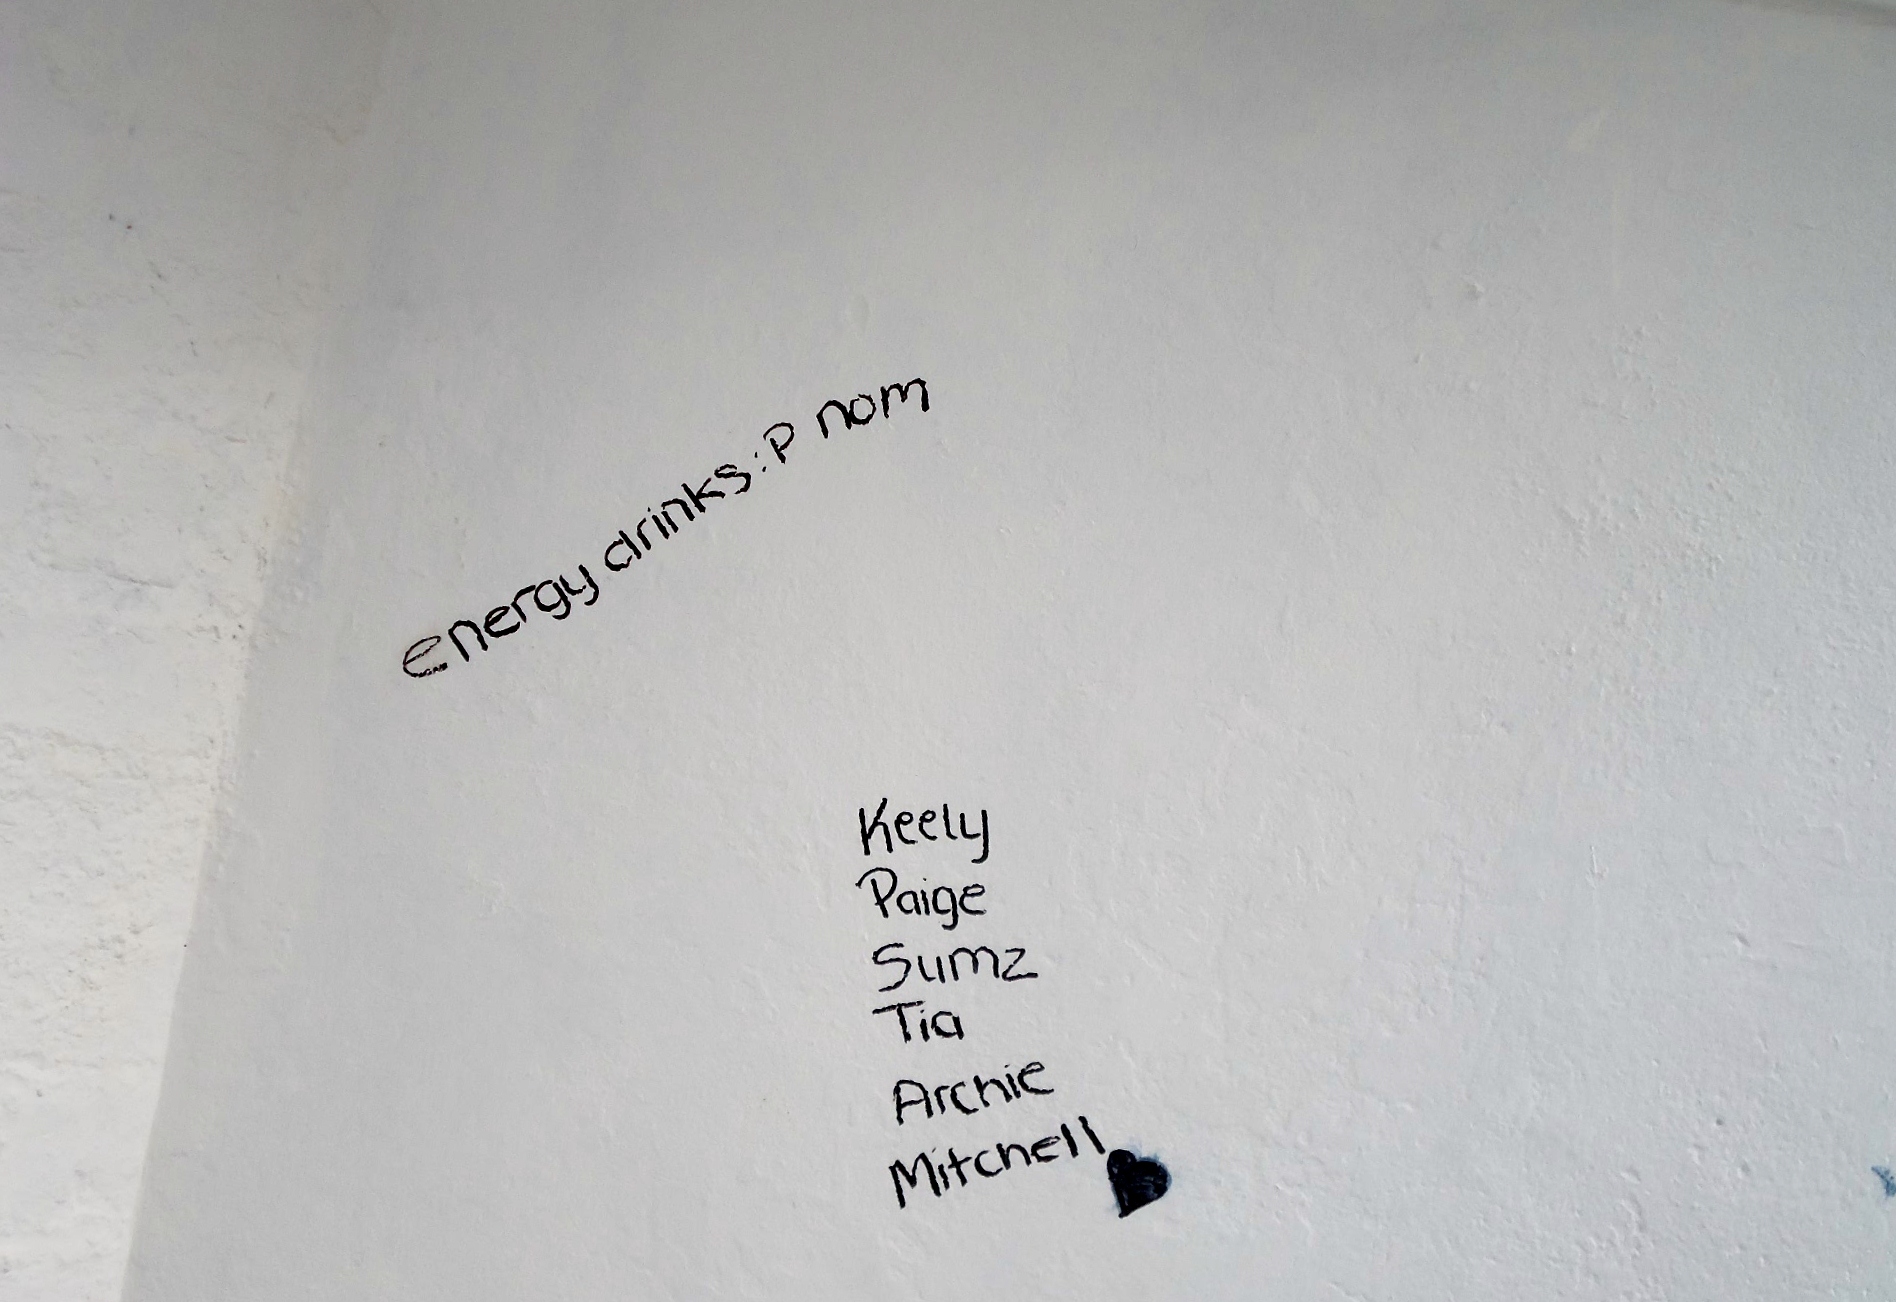 energy drinks :P nom
Keely
Paige
Sumz
Tia
Archie
Mitchell